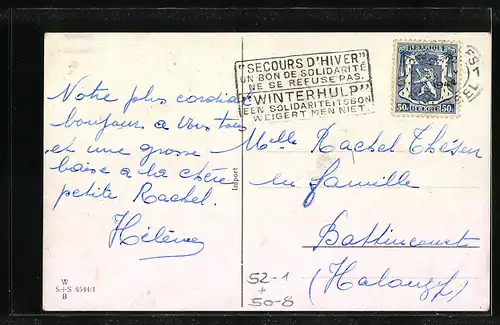 "SECOURS D'HIVER"
UN BON DE SOLIDARITÉ
NE SE REFUSE PAS.
"WINTERHULP"
EEN SOLIDARITEITSBON
WEIGERT MEN NIET.
BELGIQUE
50c BELGIE 50c
Notre plus cordial
bonjour a vous tous
et une grosse
baise a la chère
petite Rachel.
Hélène
Import
Melle Rachel
en famille
Battincourt
(Halanzy)
W
S+S 8544/1
B
52-1
+
50-8